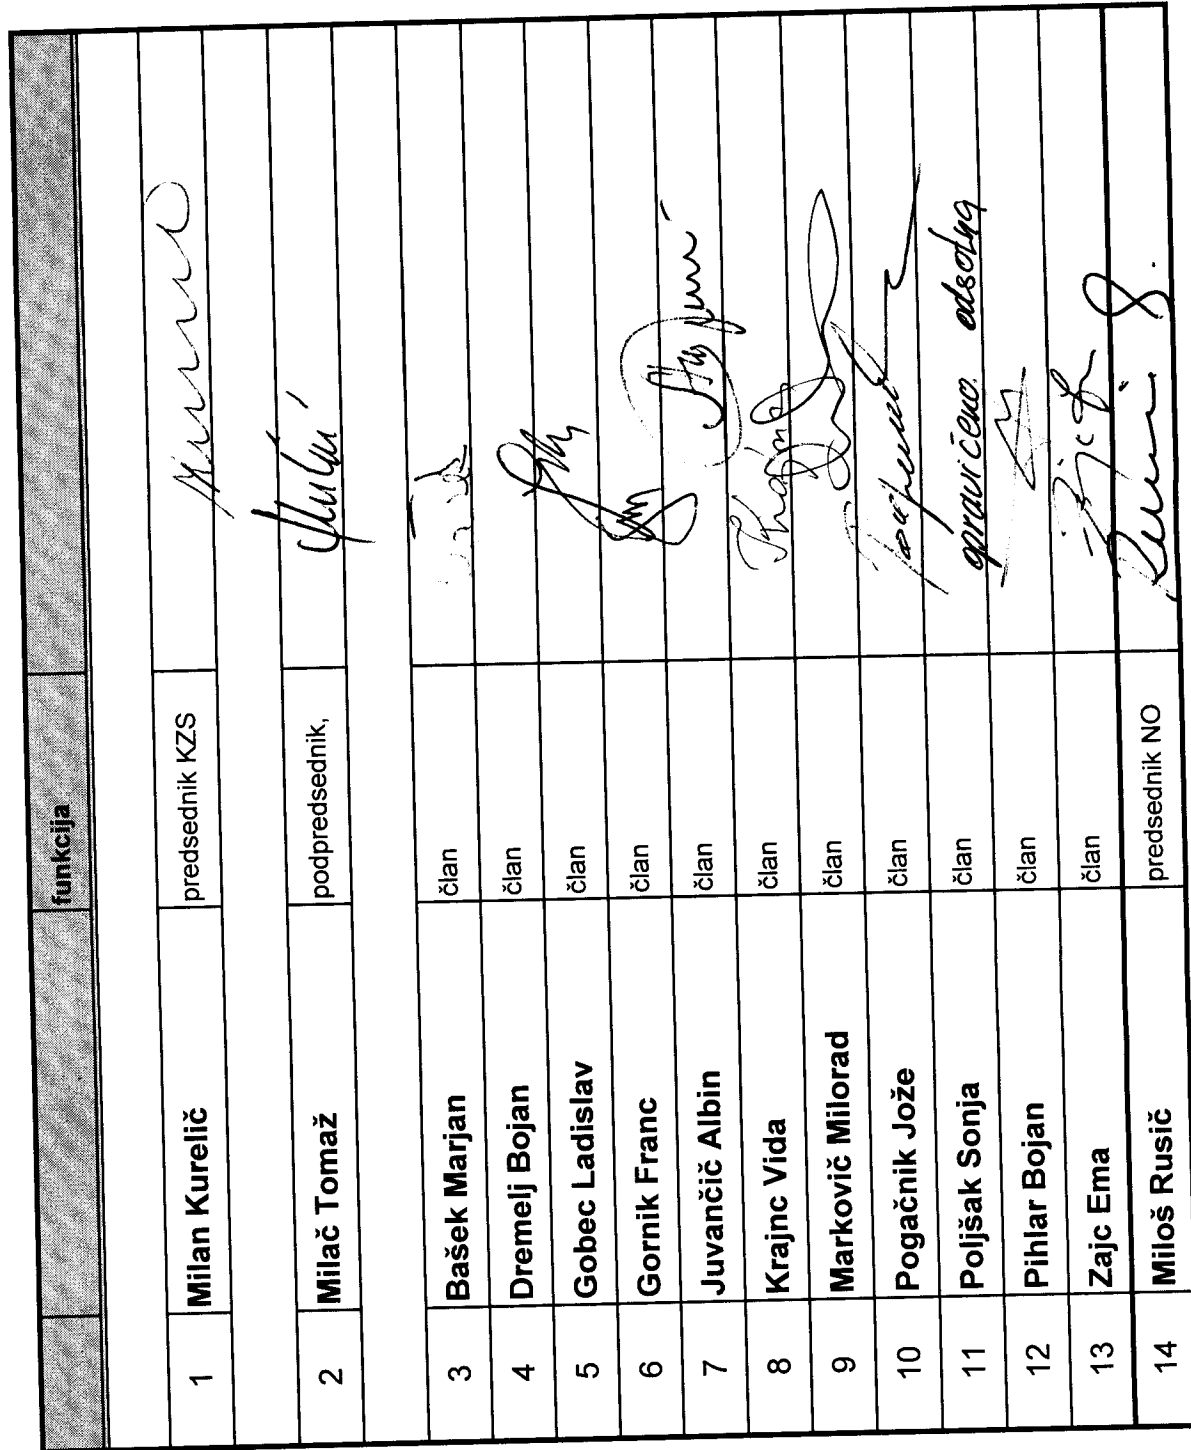 funkcija
1 Milan Kurelič predsednik KZS
2 Milač Tomaž podpredsednik,
3 Bašek Marjan član
4 Dremelj Bojan član
5 Gobec Ladislav član
6 Gornik Franc član
7 Juvančič Albin član
8 Krajnc Vida član
9 Markovič Milorad član
10 Pogačnik Jože član
11 Poljšak Sonja član opravičeno odsotna
12 Pihlar Bojan član
13 Zajc Ema član
14 Miloš Rusič predsednik NO